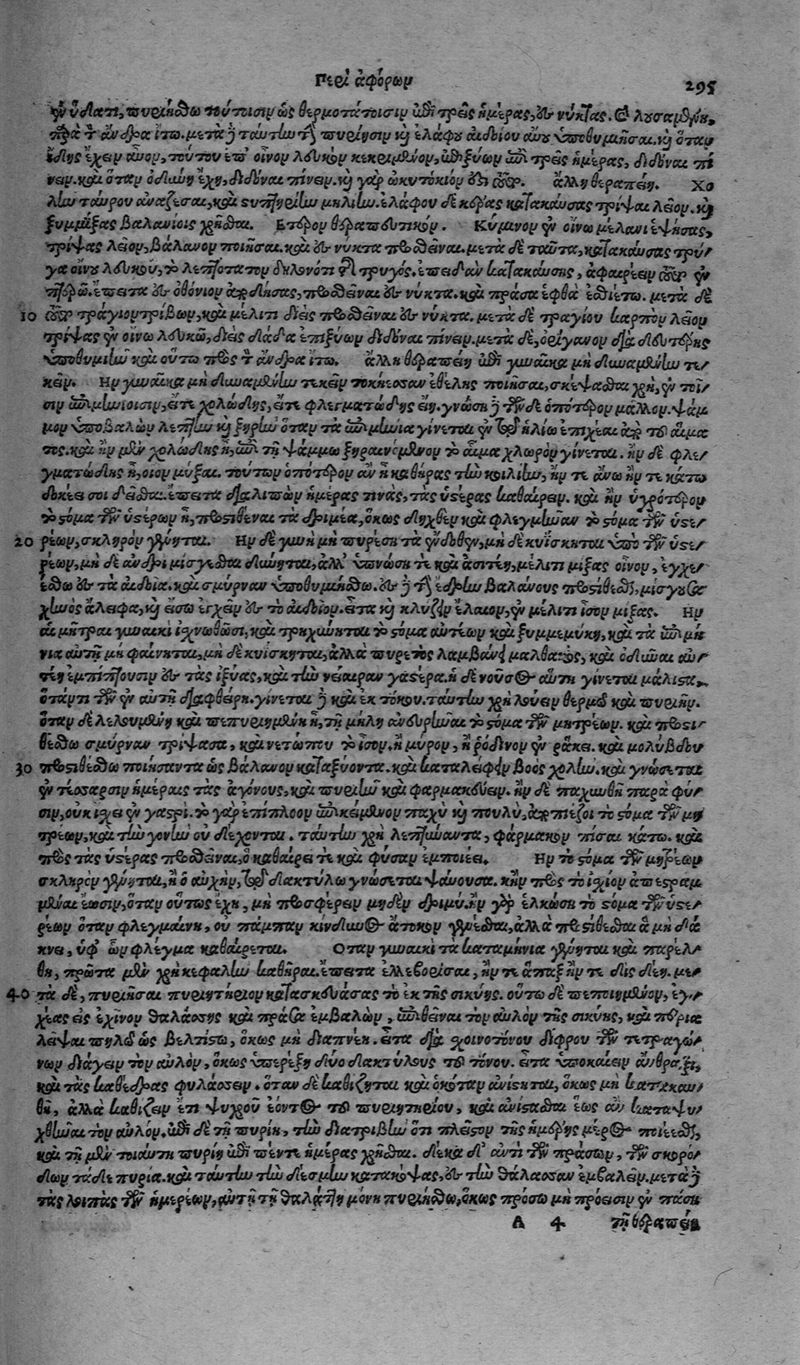 Περὶ ἀφόρων 295
ἐν ὕδατι, πυριήσθω τούτοισιν ὡς θερμοτάτοισιν ἐπὶ τρεῖς ἡμέρας, ἐς νύκτας. λουσαμένη,
παρὰ τὸν ἄνδρα ἴτω. μετὰ ταύτην τὴν πυρίησιν καὶ ἐλάφου αἰδοίου ὑποθυμιῆσαι. καὶ ὅταν
ἴδῃς ἔχειν, τούτου ἐπ' οἶνον λευκὸν κεκριμένον, ἐπιξύων ἐπὶ τρεῖς ἡμέρας, διδόναι πί
νειν. καὶ ὅταν ὀδύνη ἔχῃ, διδόναι πίνειν. καὶ γὰρ ὠκυτόκιόν ἐστι. ἄλλη θεραπείη. Χο
λὴν ταύρου ἀναζέσαι, καὶ μηλίνην. ἐλάφου δὲ κέρας κατακαύσας τρῖψαι λεῖον. καὶ
ξυμμίξας βαλανίοις χρῆσθαι. Ἕτερον θεραπευτικόν. Κύμινον ἐν οἴνῳ μέλανι ἑψήσας,
τρίψας λεῖον, βάλανον ποιῆσαι. καὶ ἐς νύκτα προσθεῖναι. μετὰ δὲ ταῦτα, κατακαύσας τρύ-
γα οἴνου λευκοῦ, τὸ λεπτότατον δηλονότι τῆς τρυγός. ἐπειδὰν κατακαύσῃς, ἀφαιρεῖν ἐν
ἔπειτα ἐς ὀθόνιον ἀποδήσας, προσθεῖναι ἐς νύκτα. καὶ πράσα ἑφθὰ ἐσθιέτω. μετὰ δὲ
10 τράγιον τρίβων, καὶ μέλιτι δεύσας προσθεῖναι ἐς νύκτα. μετὰ δὲ τραγίου καρπὸν λεῖον
τρίψας ἐν οἴνῳ λευκῷ, ἐπιξύων διδόναι πίνειν. μετὰ δὲ, ὀρίγανον
ὑποθυμιῆν καὶ οὕτω πρὸς τὸν ἄνδρα ἴτω. ἄλλη θεραπείη ἐπὶ γυναῖκα μὴ δυναμένην τε-
κεῖν. Ἢν γυναῖκα μὴ δυναμένην τεκεῖν τοκήεσσαν ἐθέλῃς ποιῆσαι, σκέψασθαι χρὴ, ἐν τοῖ-
σιν ἐπιμηνίοισιν, ἔτι χολώδης, ἔτι φλεγματώδης εἴη. γνώσῃ τῶνδε ὁπότερον μᾶλλον. ψάμ
μον ὑποβαλὼν λεπτὴν καὶ ξηρὴν ὅταν τὰ ἐπιμήνια γίνεται ἐν τῷ ἡλίῳ ἐπιχέαι ἀπὸ τοῦ αἵμα
τος. καὶ ἢν μὲν χολώδης ᾖ, ἐπὶ τῇ ψάμμῳ ξηραινόμενον τὸ αἷμα χλωρὸν γίνεται. ἢν δὲ φλε-
γματώδης ᾖ, οἷον μύξαι. τούτων ὁπότερον ἂν ᾖ καθήρας τὴν κοιλίην, ἤν τε ἄνω ἤν τε κάτω
δοκέει σοι δεῖσθαι. ἔπειτα διαλιπὼν ἡμέρας τινὰς, τὰς ὑστέρας καθαίρειν. καὶ ἢν ὑγρότερον
τὸ στόμα τῶν ὑστέρων ᾖ, προστιθέναι τὰ δριμέα, ὅκως δηχθὲν καὶ φλεγμῆναν τὸ στόμα τῶν ὑστε-
20 ρέων, σκληρὸν γένηται. Ἢν δὲ γυνὴ μὴ πυρέσῃ τὰ ἔνδοθεν, μηδὲ κυΐσκηται ὑπὸ τῶν ὑστε-
ρέων, μηδὲ ἀνδρὶ μίσγεσθαι δύνηται, ἀλλ' ὑπνώσῃ τε καὶ ἀσιτέῃ, μέλιτι μίξας οἶνον, ἐγχε-
έσθω ἐς τὰ αἰδοῖα. καὶ σμύρναν ὑποθυμιήσθω. ἐς τὴν ἕδρην βαλάνους προστίθεσθαι, μίσγουσα
χηνὸς ἄλειφα, καὶ εἴσω ἔγχειν ἐς τὸ αἰδοῖον. εἶτα καὶ κλύζειν ἔλαιον, ἐν μέλιτι ἴσον μίξας. Ἢν
αἱ μῆτραι γυναικὶ ἰσχνωθῶσι, καὶ τρηχύνηται τὸ στόμα αὐτέων καὶ ξυμμεμύκῃ, καὶ τὰ ἐπιμή
νια αὐτῇ μὴ φαίνηται, μηδὲ κυΐσκηται, ἀλλὰ πυρετὸς λαμβάνῃ μαλθακὸς, καὶ ὀδύναι αὐ-
τῇ ἐμπίπτουσιν ἐς τὰς ἰξύας, καὶ τὴν νείαιραν γαστέρα. ἡ δὲ νοῦσος αὕτη γίνεται μάλιστα,
ὅταν τι τῶν ἐν αὐτῇ διαφθαρῇ. γίνεται καὶ ἐκ τόκου. ταύτην χρὴ λούειν θερμῷ καὶ πυριῆν.
ὅταν δὲ λελουμένη καὶ πεπυριημένη ᾖ, τῇ μήλῃ ἀνευρῦναι τὸ στόμα τῶν μητρέων. καὶ προστι-
θέσθω σμύρναν τρίψασα, καὶ νετώπου τὸ ἴσον, ἢ μύρον, ἢ ῥόδινον ἐν ῥάκει. καὶ μολύβδου
30 προστιθέσθω ποιήσαντα ὡς βάλανον καταξύοντα. καὶ καταλείφειν βοὸς χολὴν. καὶ γνώσεται
ἐν τέσσαρσιν ἡμέραις τὰς ἀγόνους, καὶ πυριῆν καὶ φαρμακεύειν. ἢν δὲ παχυνθῇ παρὰ φύ-
σιν, οὐκ ἴσχει ἐν γαστρί. τὸ γὰρ ἐπίπλοον ἐπικείμενον παχὺ καὶ πουλὺ, ἀποπιέζει τὸ στόμα τῶν μη
τρέων, καὶ τὴν γονὴν οὐ δέχονται. ταύτην χρὴ λεπτύναντα, φάρμακον πῖσαι κάτω. καὶ
πρὸς τὰς ὑστέρας προσθεῖναι, ὃ καθαίρει τε καὶ φῦσαν ἐμποιέει. Ἢν τὸ στόμα τῶν μητρέων
σκληρὸν γένηται, ἢ ὁ αὐχὴν, τῷ δακτύλῳ γνώσεται ψαύουσα. κἢν πρὸς τὸ ἰσχίον ἀπεστραμ
μέναι ἔωσιν, ὅταν οὕτως ἔχῃ, μὴ προσφέρειν μηδὲν δριμύ. ἢν γὰρ ἑλκωθῇ τὸ στόμα τῶν ὑστε-
ρέων ὅταν φλεγμαίνῃ, οὐ πάμπαν κίνδυνος ἄτοκον γενέσθαι, ἀλλὰ προστίθεσθαι ἃ μὴ δά
κνει, ὑφ' ὧν φλέγμα καθαίρεται. Ὅταν γυναικὶ τὰ καταμήνια γένηται καὶ παρέλ-
θῃ, πρῶτα μὲν χρὴ κεφαλὴν καθῆραι. ἔπειτα ἐλλεβορίσαι, ἤν τε ἅπαξ ἤν τε δὶς δέῃ. με-
40 τὰ δὲ, πυριῆσαι πυριητήριον κατασκευάσας τὸ ἐκ τῆς σικύης. οὕτω δὲ πεποιημένον, ἐγ-
χέας εἰς ἐχῖνον θαλάσσης καὶ πράσα ἐμβαλὼν, ἐπιθεῖναι τὸν αὐλὸν τῆς σικύης, καὶ πέρια
λεῖψαι πηλῷ ὡς βελτίστῳ, ὅκως μὴ διαπνέῃ. εἶτα διὰ σχοινοτόνου δίφρου τῶν τετραγώ-
νων διάγειν τὸν αὐλὸν, ὅκως ὑπερέξῃ δύο δακτύλους τοῦ τόνου. εἶτα ὑποκαίειν ἄνθραξι,
καὶ τὰς καθέδρας φυλάσσειν. ὅταν δὲ καθίζηται καὶ ὁκόταν ἀνίστηται, ὅκως μὴ κατακαυ-
θῇ, ἀλλὰ καθίζειν ἐπὶ ψυχροῦ ἐόντος τοῦ πυριητηρίου, καὶ ἀνίστασθαι ἕως ἂν καταψυ-
χθῆναι τὸν αὐλὸν. ἐπὶ δὲ τῇ πυρίῃ, τὴν διατριβὴν ὅτι πλεῖστον τῆς ἡμέρης μέρος ποιέεσθαι,
καὶ τῇ μὲν τοιαύτῃ πυρίῃ ἐπὶ πέντε ἡμέρας χρῆσθαι. δέκα δ' ἀντὶ τῶν πράσων, τῶν σκορό-
δων τὰ δὲ πυρία. καὶ ταύτην τὴν δέσμην κατακόψας, ἐς τὴν θάλασσαν ἐμβαλεῖν. μετὰ
τὰς λοιπὰς τῶν ἡμερέων, αὐτῇ τῇ θαλάττῃ μόνῃ πυριήσθω, ὅκως πρόσω μὴ πρόεισιν ἐν πάσῃ
A 4 τῇ θεραπείῃ